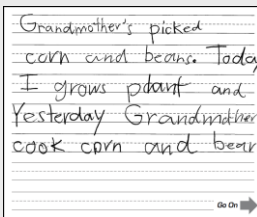 Grandmother's picked
corn and beans. Today
I grows plant and
Yesterday Grandmother
cook corn and bear
Go On